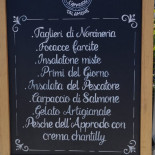 .Taglieri di Norcineria
.Focacce farcite
.Insalatone miste
.Primi del Giorno
.Insalata del Pescatore
.Carpaccio di Salmone
.Gelato Artigianale
.Pesche dell'Approdo con
crema chantilly